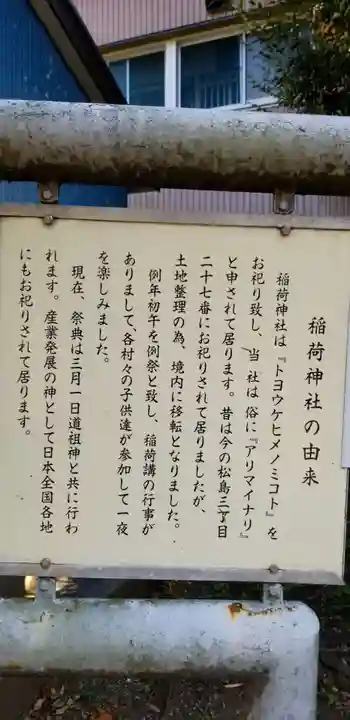 稲荷神社の由来
稲荷神社は『トヨウケヒメノミコト』を
お祀り致し、当社は俗に『アリマイナリ』
と申されて居ります。昔は今の松島三丁目
二十七番にお祀りされて居りましたが、
土地整理の為、境内に移転となりました。
例年初午を例祭と致し、稲荷講の行事が
ありまして、各村々の子供達が参加して一夜
を楽しみました。
現在、祭典は三月一日道祖神と共に行わ
れます。産業発展の神として日本全国各地
にもお祀りされて居ります。